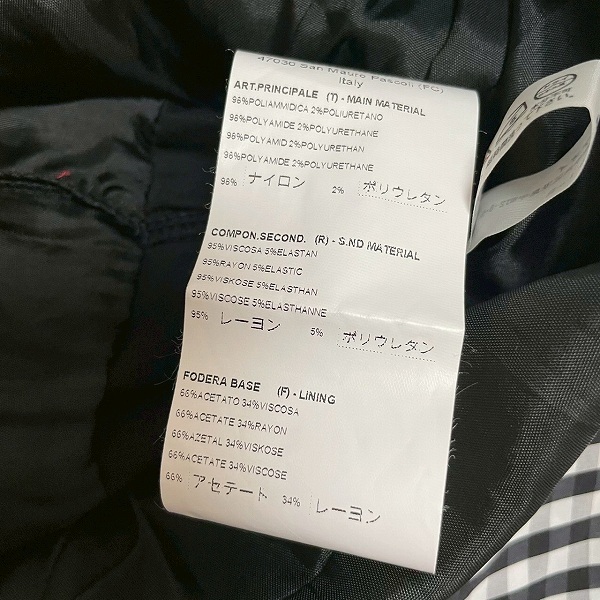 47030 San Mauro Pascoli (FC)
Italy
ART.PRINCIPALE (T) - MAIN MATERIAL
98%POLIAMMIDICA 2%POLIURETANO
98%POLYAMIDE 2%POLYURETHANE
98%POLYAMID 2%POLYURETHAN
98%POLYAMIDE 2%POLYURETHANE
98% ナイロン 2% ポリウレタン
COMPON.SECOND. (R) - S.ND MATERIAL
95%VISCOSA 5%ELASTAN
95%RAYON 5%ELASTIC
95%VISKOSE 5%ELASTHAN
95%VISCOSE 5%ELASTHANNE
95% レーヨン 5% ポリウレタン
FODERA BASE (F) - LINING
66%ACETATO 34%VISCOSA
66%ACETATE 34%RAYON
66%AZETAL 34%VISKOSE
66%ACETATE 34%VISCOSE
66% アセテート 34% レーヨン